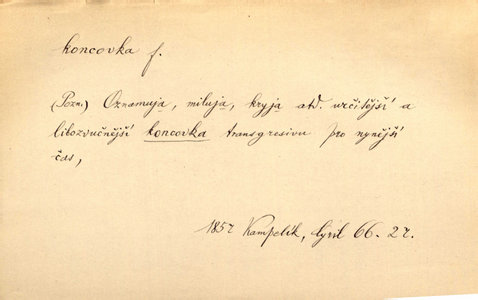 koncovka f.
(Pozn.) Oznamuja, miluja, kryja atd. určitější a
libozvučnější koncovka transgresivu pro nynější
čas,
1857 Kampelík, Cyril 66. 27.